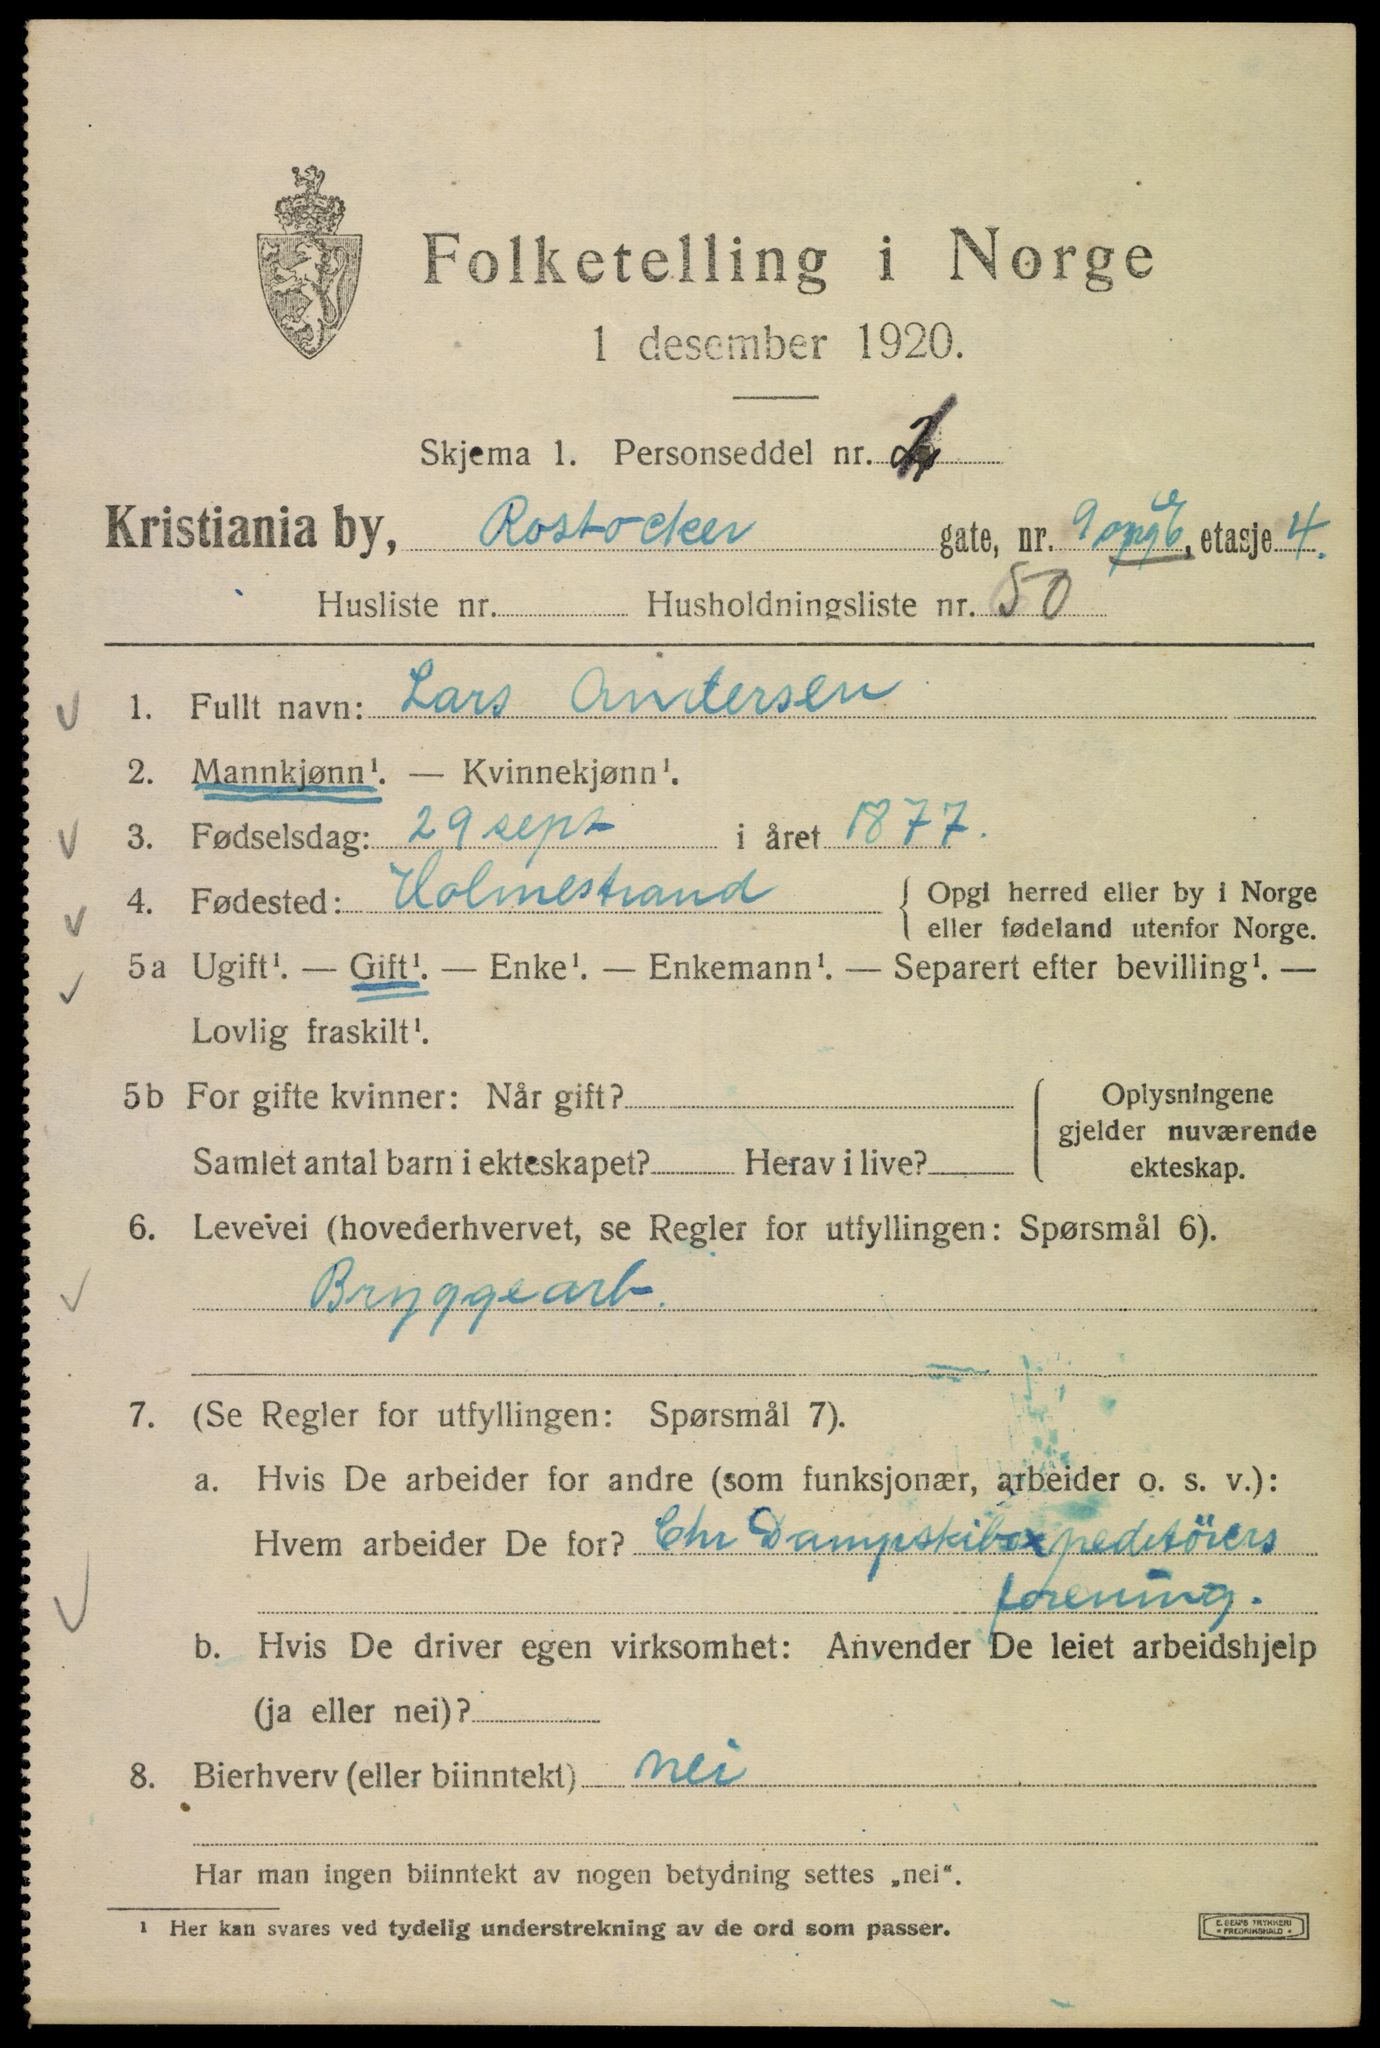 Folketelling i Norge
1 desember 1920.
Skjema 1. Personseddel nr.
Kristiania by, Rostocker gate, nr. 9 opg b, etasje 4.
Husliste nr. Husholdningsliste nr. 50
1. Fullt navn: Lars Andersen
2. Mannkjønn¹. — Kvinnekjønn¹.
3. Fødselsdag: 29 sept i året 1877.
4. Fødested: Holmestrand { Opgi herred eller by i Norge
eller fødeland utenfor Norge.
5a Ugift¹. — Gift¹. — Enke¹. — Enkemann¹. — Separert efter bevilling¹. —
Lovlig fraskilt¹.
5b For gifte kvinner: Når gift? { Oplysningene
gjelder nuværende
Samlet antal barn i ekteskapet? Herav i live? ekteskap.
6. Levevei (hovederhvervet, se Regler for utfyllingen: Spørsmål 6).
Bryggearb.
7. (Se Regler for utfyllingen: Spørsmål 7).
a. Hvis De arbeider for andre (som funksjonær, arbeider o. s. v.):
Hvem arbeider De for? Chr Dampskibsexpeditörers
forening.
b. Hvis De driver egen virksomhet: Anvender De leiet arbeidshjelp
(ja eller nei)?
8. Bierhverv (eller biinntekt) nei
Har man ingen biinntekt av nogen betydning settes „nei“.
¹ Her kan svares ved tydelig understrekning av de ord som passer.
E. SEM'S TRYKKERI
FREDRIKSHALD